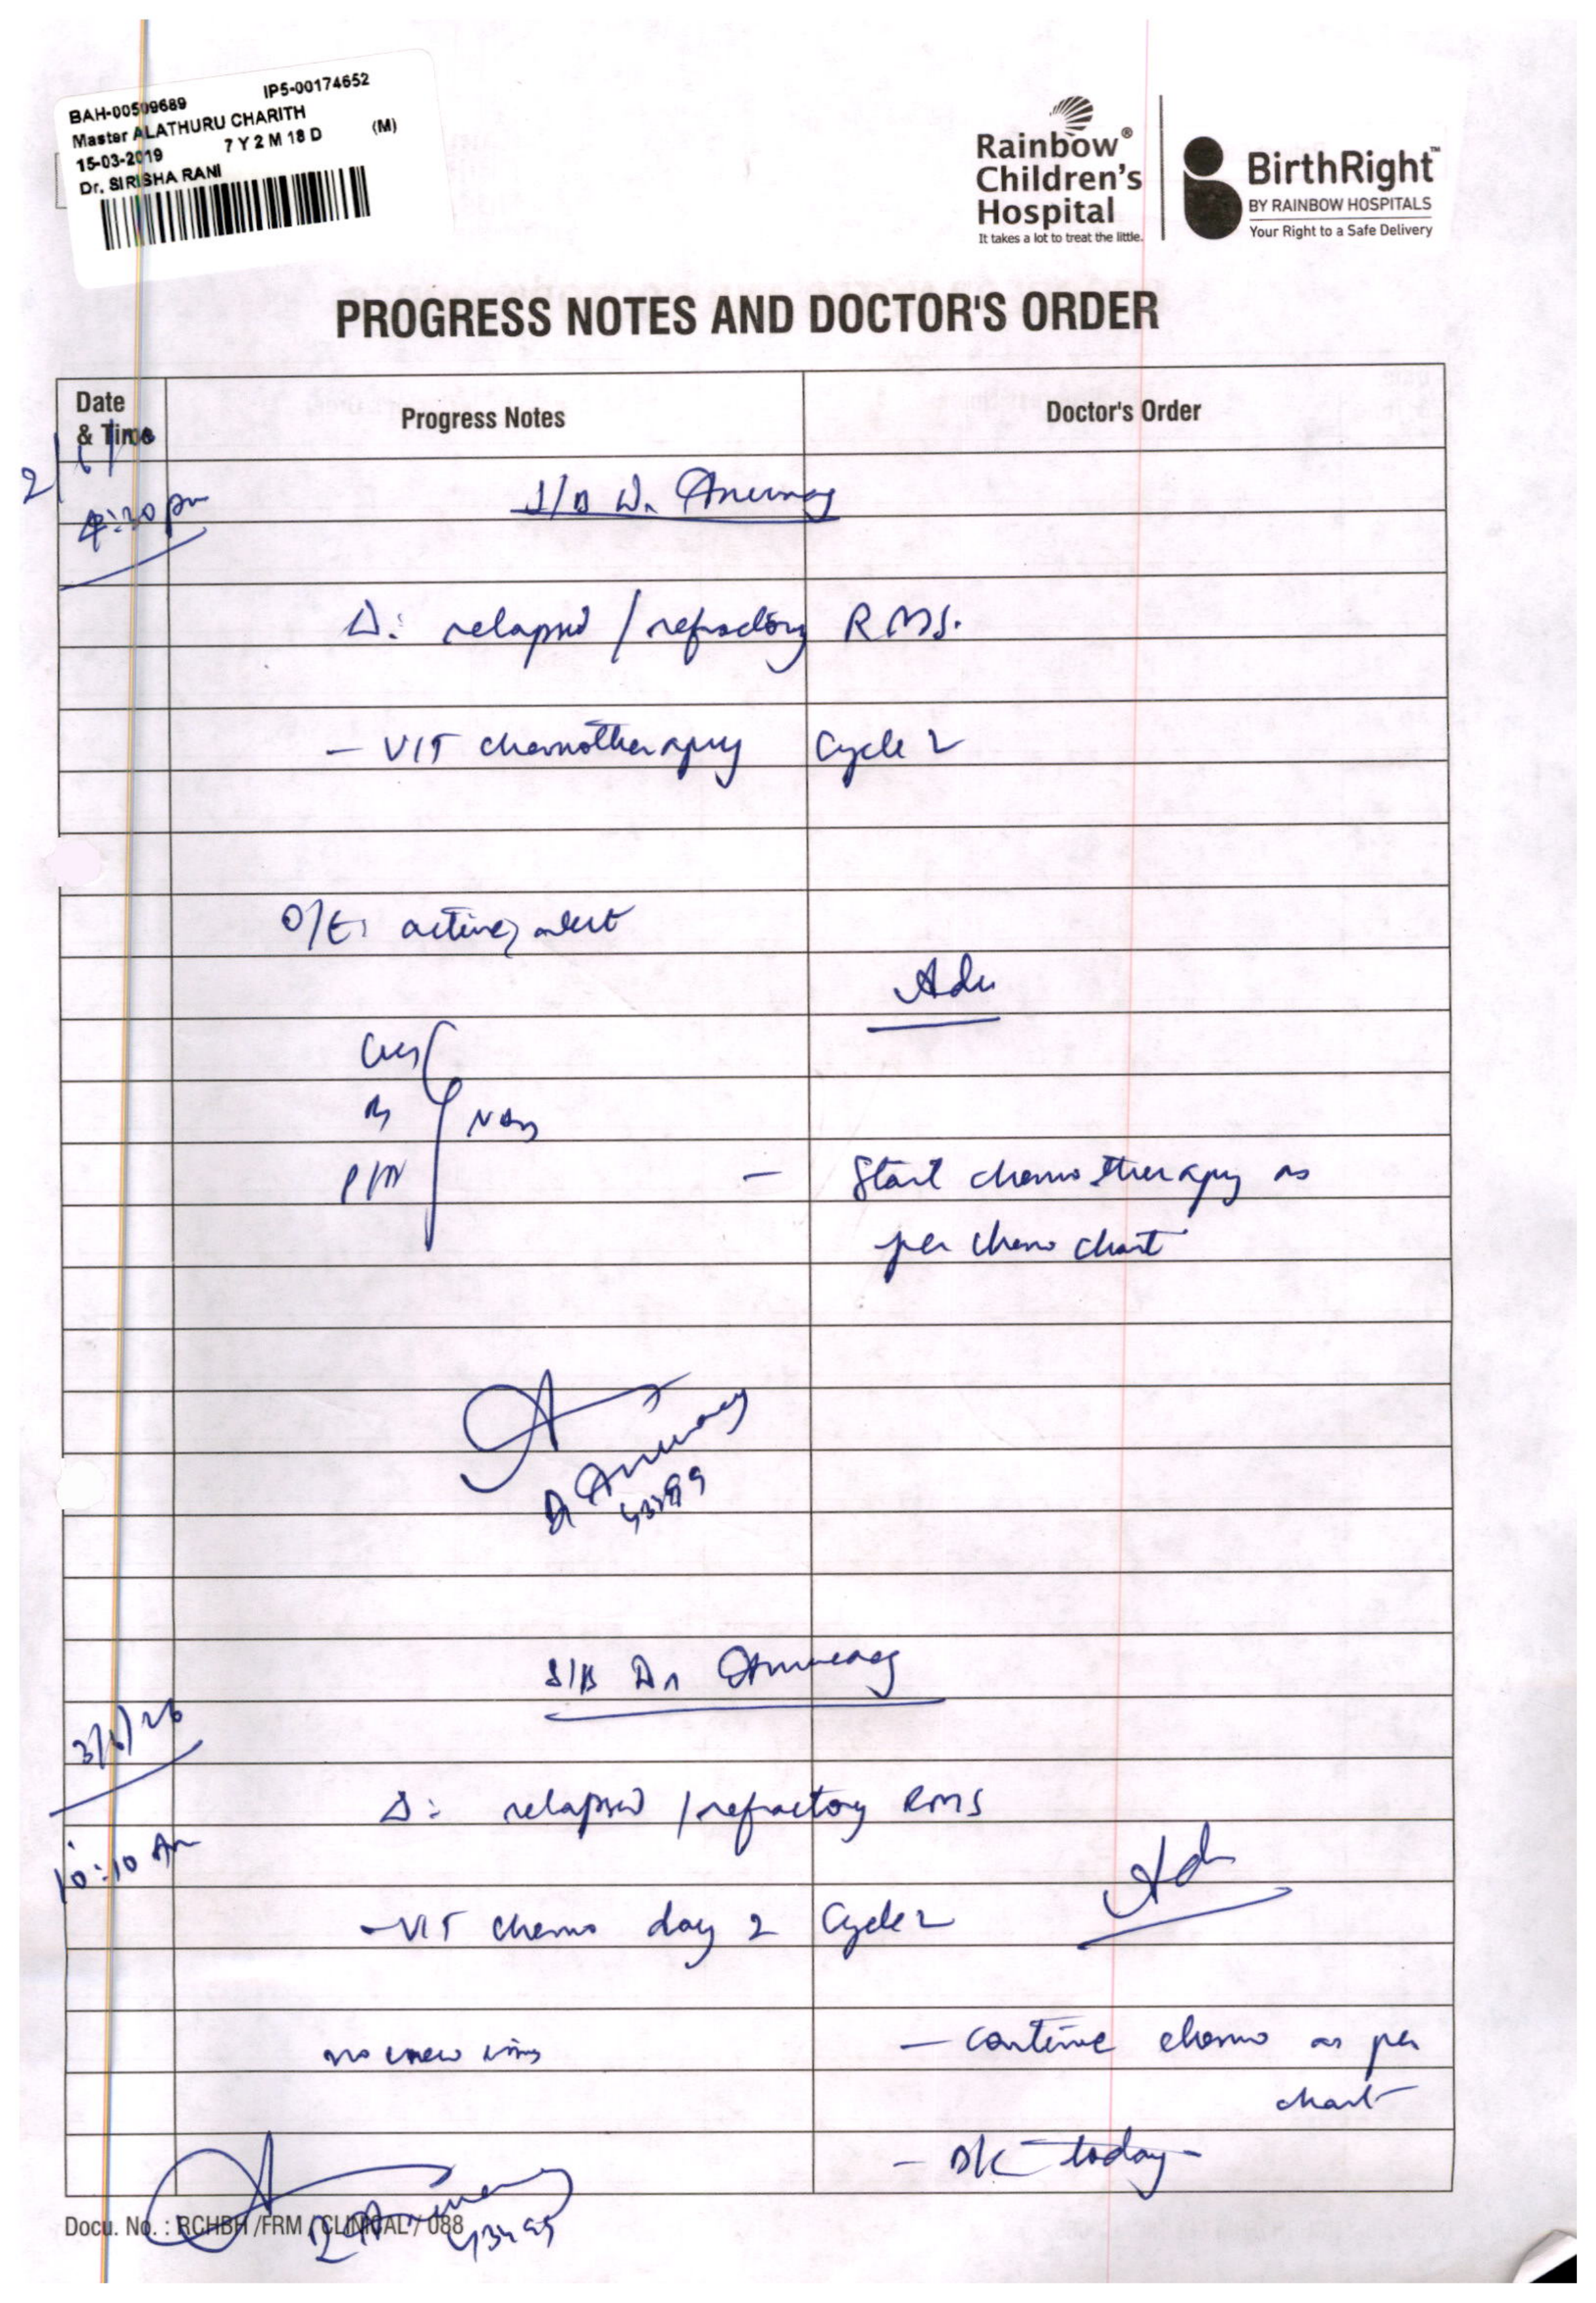 BAH-00509689 IP5-00174652
Master ALATHURU CHARITH
15-03-2019 7 Y 2 M 18 D (M)
Dr. SIRISHA RANI
Rainbow®
Children's
Hospital
It takes a lot to treat the little.
BirthRight™
BY RAINBOW HOSPITALS
Your Right to a Safe Delivery
PROGRESS NOTES AND DOCTOR'S ORDER
Date
& Time
Progress Notes
Doctor's Order
2/6/
4:30 pm
S/B Dr Anurag
Δ: relapsed / refractory RMS.
- VIT chemotherapy Cycle 2
O/E: active, alert
Adv
CVS
RS NAD
P/A
- Start chemotherapy as
per chemo chart
Dr Anurag
S/B Dr Anurag
3/6/26
10:10 Am
Δ: relapsed / refractory RMS
Adv
- VIT chemo day 2 Cycle 2
no new
- continue chemo as per
chart
- today
Dr Anurag
Docu. No. : RCHBH /FRM / CLINICAL / 088